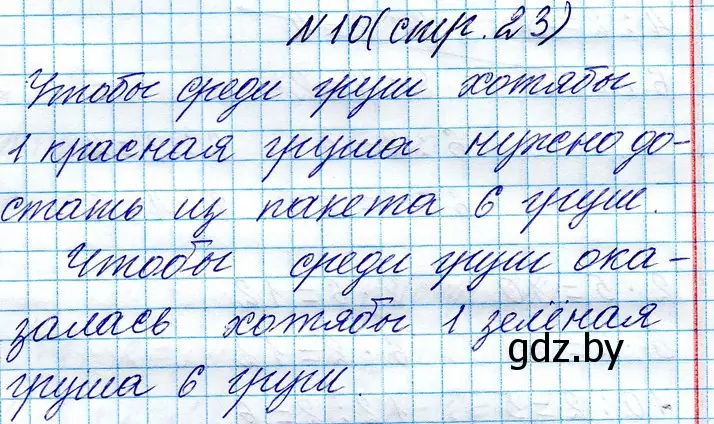 N10(стр. 23)
Чтобы среди груш хотябы
1 красная груша нужно до-
стать из пакета 6 груш.
Чтобы среди груш ока-
залась хотябы 1 зелёная
груша 6 груш.
gdz.by